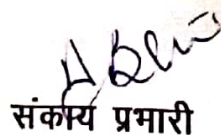 संकाय प्रभारी